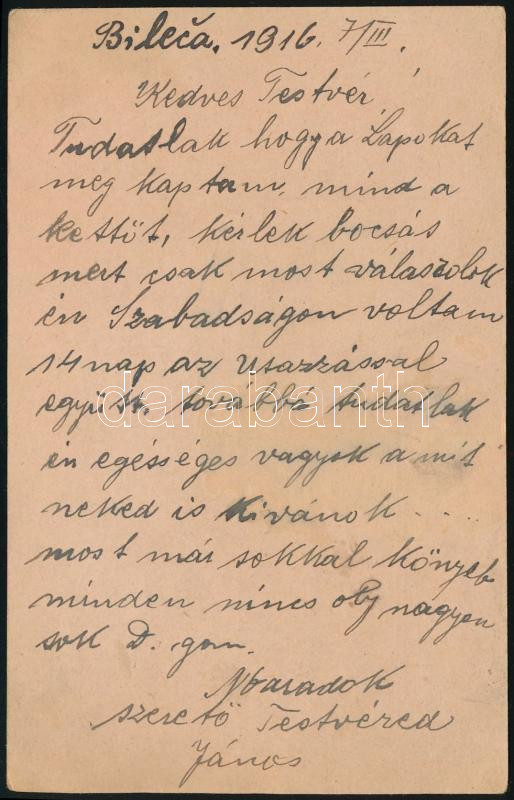 Bileča, 1916. 7/III.
Kedves Testvér!
Tudatlak hogy a Lapokat
meg kaptam, mind a
kettöt, kérlek bocsás
mert csak most válaszolok
én Szabadságon voltam
14 nap az Utazzással
együtt, továbbá tudatlak
darabanth
én egésséges vagyok a mit
neked is kivánok . . . .
most már sokkal könyeb
minden nincs oly nagyon
sok D. gon.
Maradok
szerető Testvéred
János